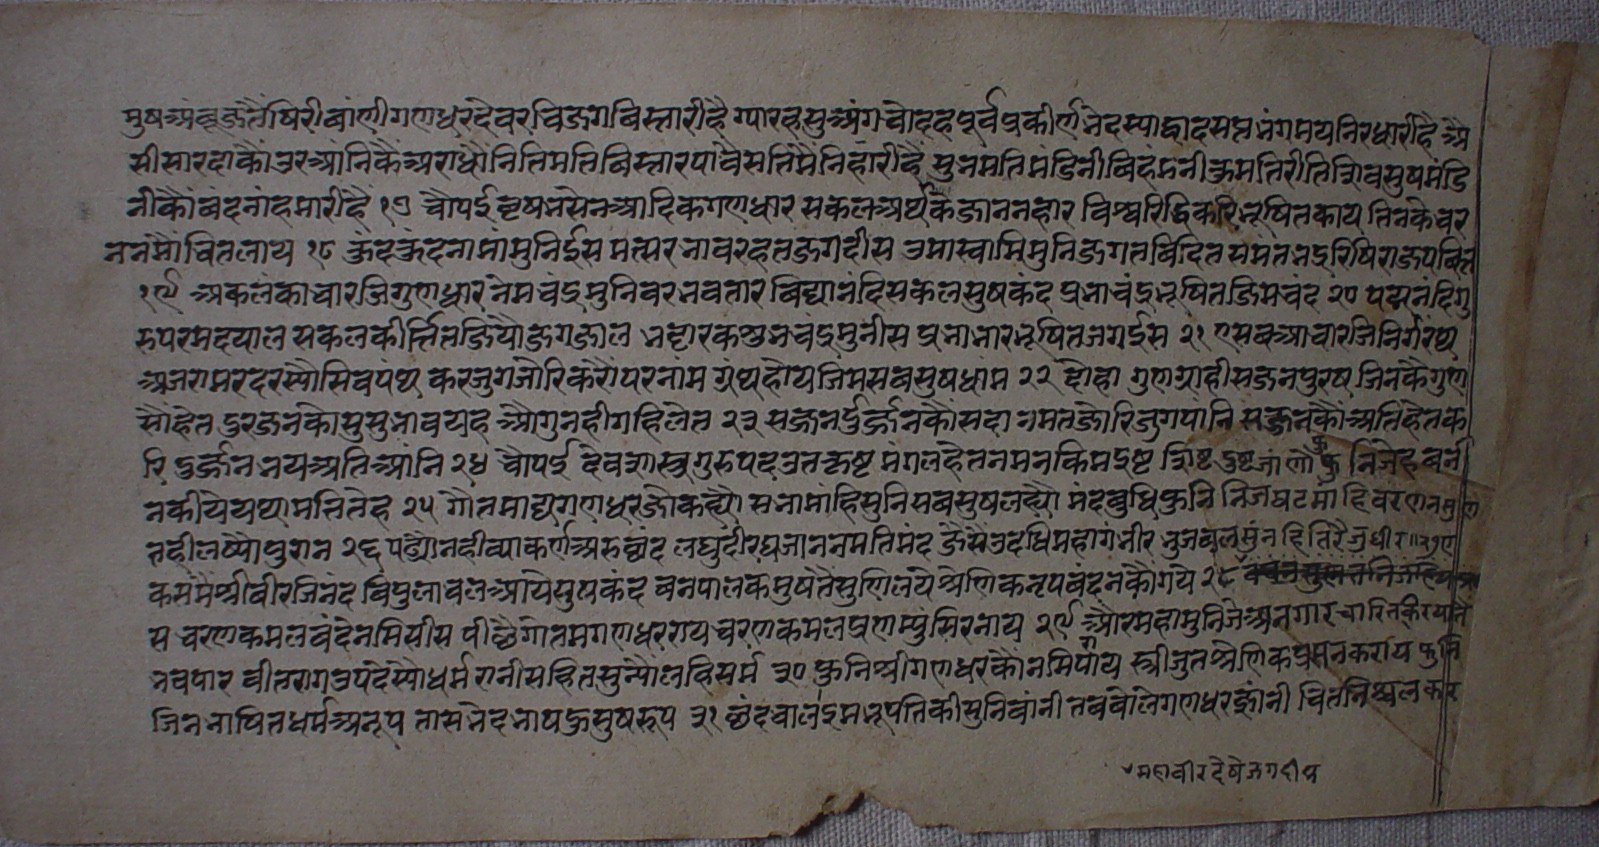 मुषअंबूजतैंषिरीबांणीगणधरदेवरचिजगबिस्तारीहै ग्पारहसुअंगचौदहपूर्वप्रकीर्णभेदस्याद्वादसप्तभंगमयनिरधारीहै औ
सीसारदाकौंउरआंनिकैंअराधौंनितिमतिबिस्तारपांवैसतिमैंनिहारीहैं सुभमतिमंडिनीबिहंमनीकुमतिरीतिशिवसुषमंडि
नीकौंबंदनांहमारीहैं १७ चौपई वृषभसेनआदिकगणधार सकलअर्थकेजाननहार विश्वरिद्धिकरिभूषितकाय तिनकेचर
ननमौंचितलाय १८ कुंदकुंदनामांमुनिईस मत्सरनावरहतजगदीस उमास्वामिमुनिजगतविदित समतभद्ररिषिराजपवित्त
१९ अकलंकाचारजिगुणधार नेमचंद्रमुनिवरभवतार बिद्यानंदिसकलसुषकंद प्रभाचंद्रभूषितजिमचंद २० पद्मनंदिगु
रुपरमदयाल सकलकीर्त्तितजियौजगजाल भट्टारकशुभचंद्रमुनीस प्रभाभारभूषितजगईस २१ एसबआचारजिनिर्गरंथ
अजरामरदरस्यौसिवपंथ करजुगजोरिकरौंपरनाम ग्रंथहोयजिमसबसुषधांम २२ दोहा गुणग्राहीसज्जनपुरुष जिनकैगुण
सौहेत दुरजनकोसुसुभावयह औगुनहीगहिलेत २३ सज्जनदुर्ज्जनकौंसदा नमतजोरिजुगपांनि सज्जनकौंअतिहेतक
रि दुर्ज्जनभयअतिआंनि २४ चौपई देवशास्त्रगुरुपदउतकृष्ट मंगलहेतनमनकिमइष्ट शिष्टदुष्टजांणौं निजेहबर्न
नकीयेयथामतितेह २५ गौतमाद्यगणधरजोकह्यौ सभामांहिसुनिसबसुषलह्यौ मंदबुधिफुनि निजघटमांहि वरणन
नहीलष्यौपुरान २६ पढ्योनहीव्याकर्णअरुछंद लघुदीरघजाननमतिमंद जैसैंउदधिमहागंभीर भुजबल हितिरैजुधीर ॥२७ए
कसमैंश्रीबीरजिनंद बिपुलाचलआयेसुषकंद वनपालकमुषतैसुणिलये श्रेणिकनृपबंदनकौंगये २८
य चरणकमलबंदेनमिसीस पीछैगोतमगणधरराय चरणकमलप्रणम्पुंसिरनाय २९ औरमहामुनिजेअनगार
भवपार वीतरागउपदेस्यौधर्म रानीसहितसुन्यौलहिसर्म ३० फुनिश्रीगणधरकौनमिपाय स्त्रीजुतश्रेणिकप्रसनकराय फुनि
जिनभाषितधर्मअनूप तासभेदभाषजुसुषरूप ३१ छंदचाल इमभूपतिकीसुनिबांनी तबबोलेगणधरज्ञांनी चितनिश्चलकर
महाबीरदेषेजगदीस